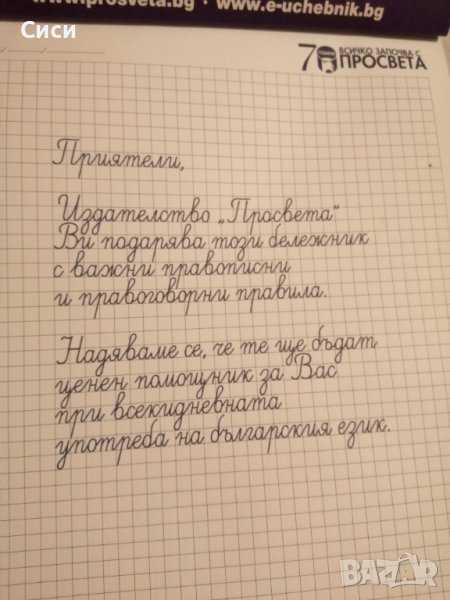 www.prosveta.bg · www.e-uchebnik.bg
Сиси
70 ВСИЧКО ЗАПОЧВА С
ПРОСВЕТА
Приятели,
Издателство „Просвета“
Ви подарява този бележник
с важни правописни
и правоговорни правила.
Надяваме се, че те ще бъдат
ценен помощник за Вас
при всекидневната
употреба на българския език.
BAZAR